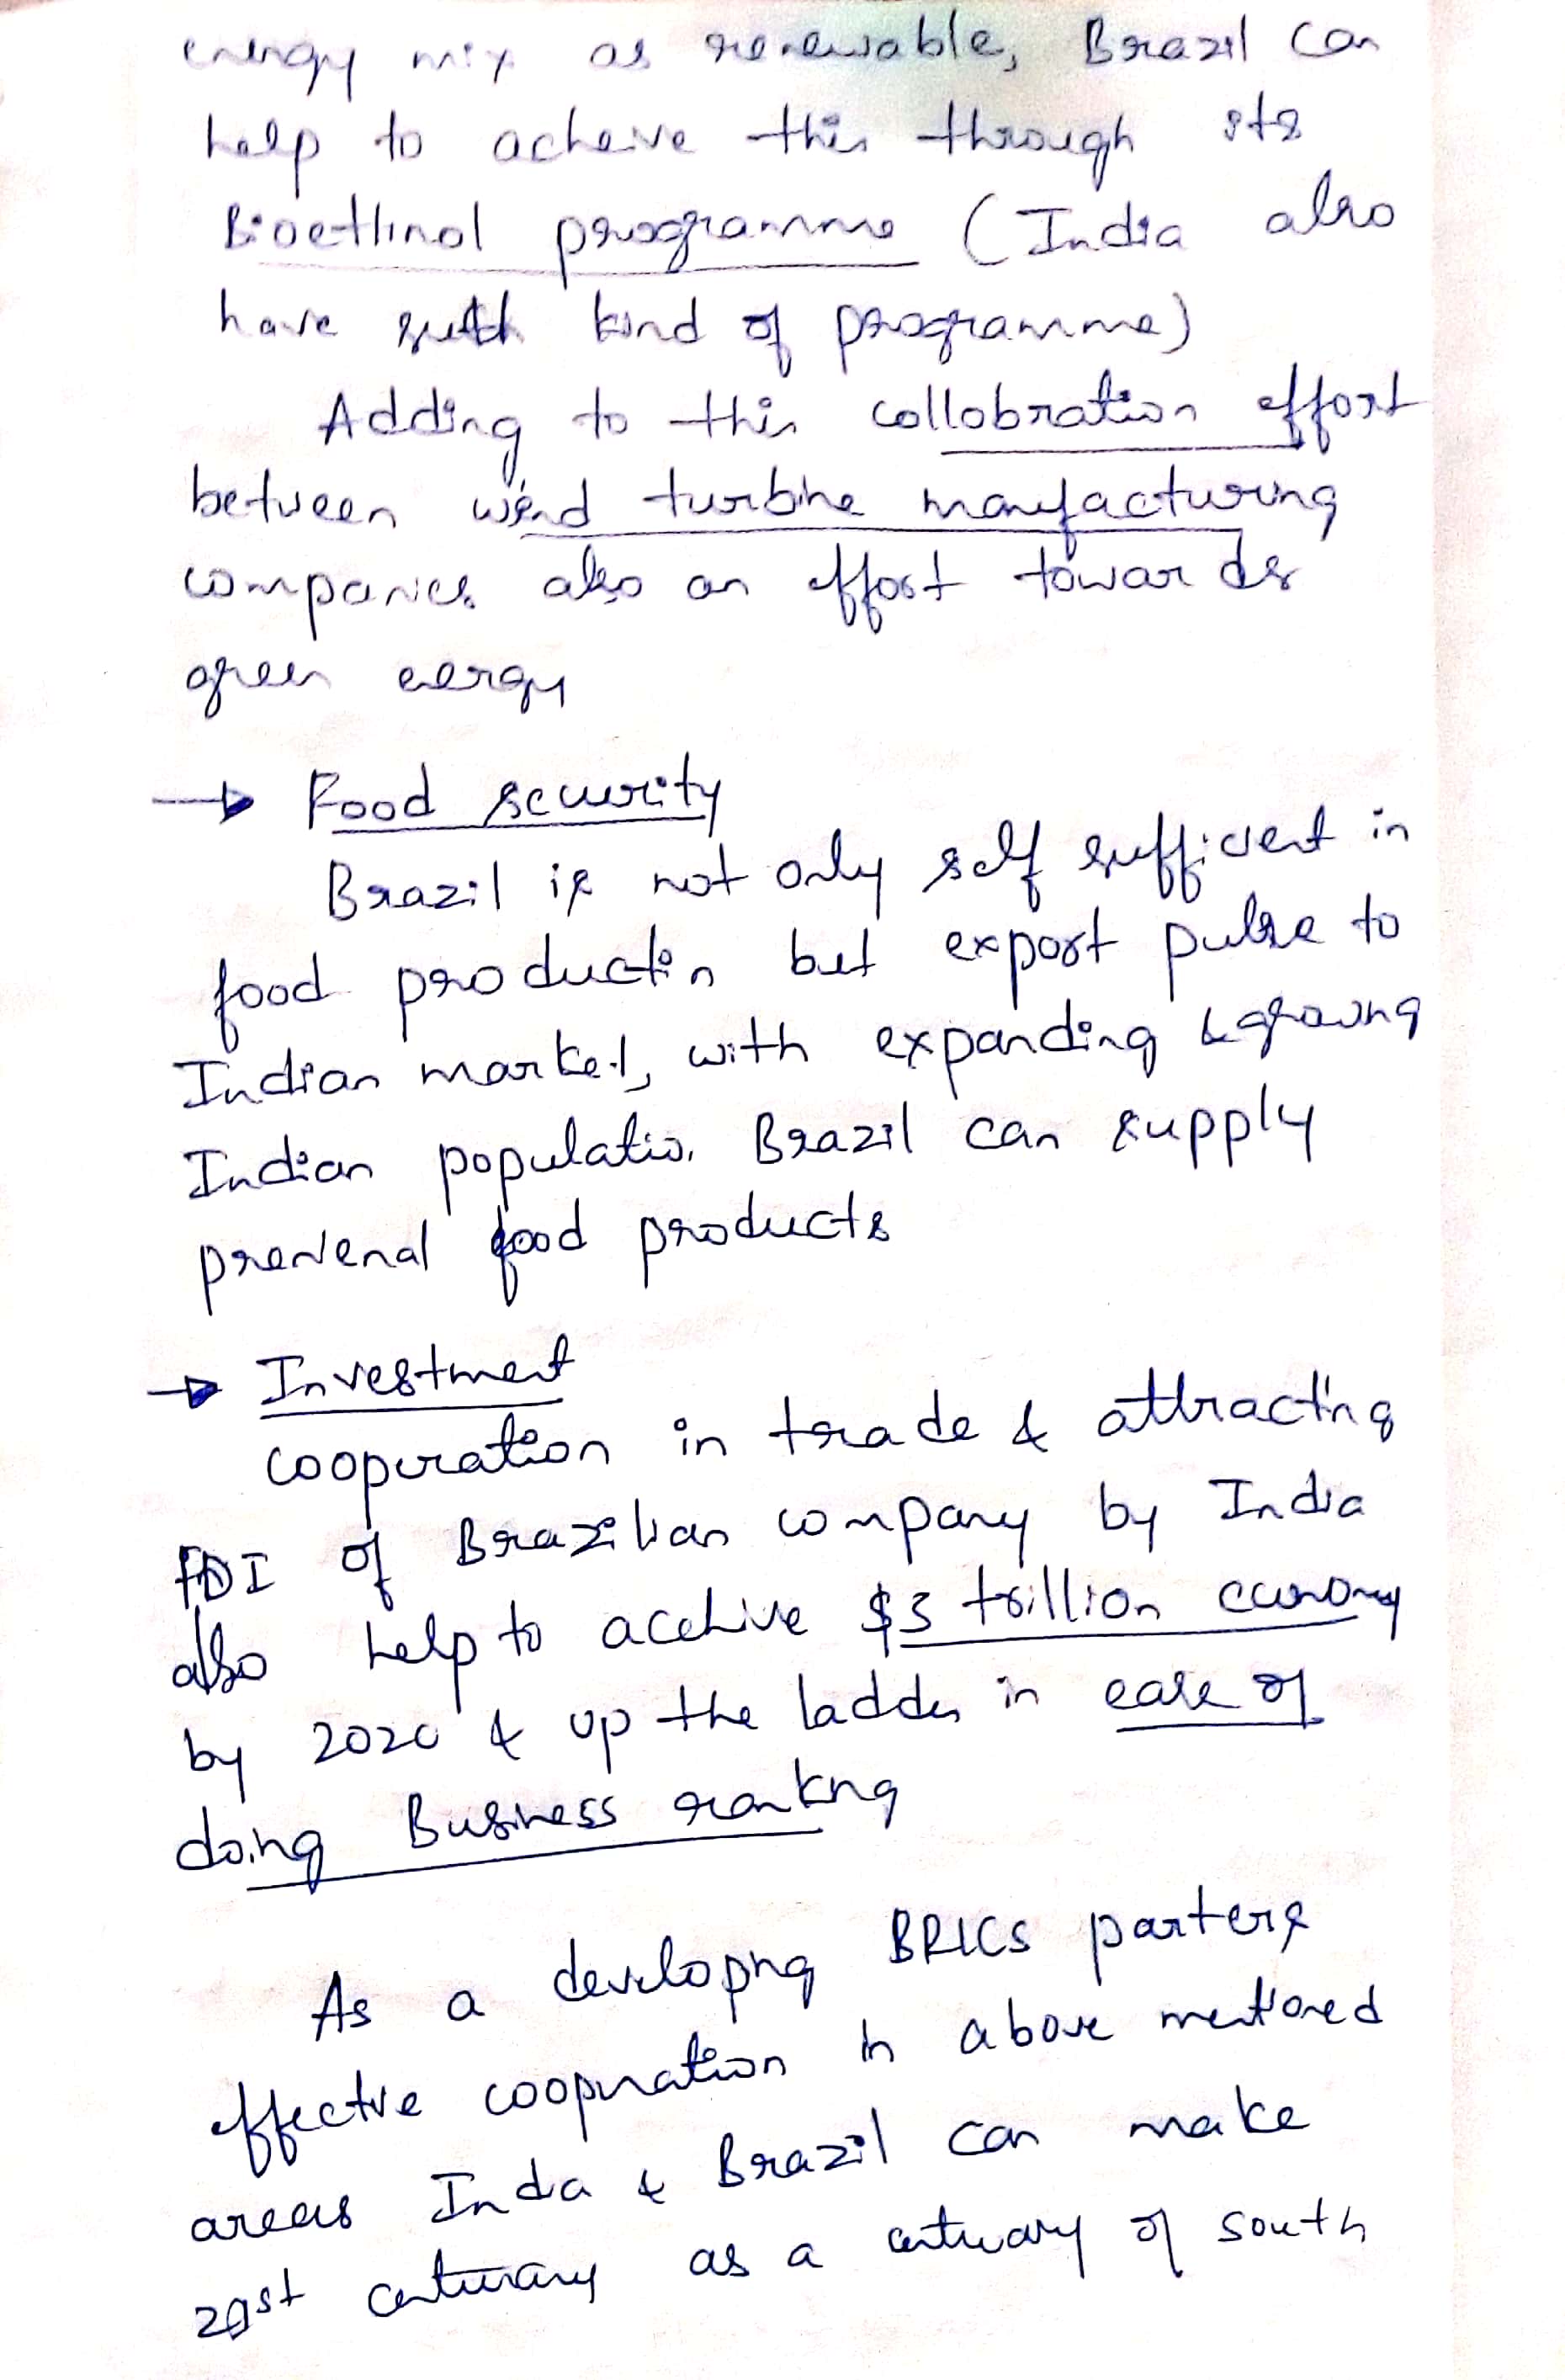 energy mix as renewable, Brazil can
help to acheive this through its
Bioethnol programme (India also
have such kind of programme)
Adding to this collobration effort
between wind turbine manufacturing
companies also an effort towards
green energy
→ Food security
Brazil is not only self sufficient in
food production but export pulse to
Indian market, with expanding & growing
Indian population Brazil can supply
food products
→ Investment
cooperation in trade & attracting
FDI of Brazilian company by India
also help to acchive $5 trillion economy
by 2020 & up the ladder in ease of
doing Business ranking
As a developing BRICS parters
effective cooperation in above mentioned
areas India & Brazil can make
21st centuary as a centuary of south